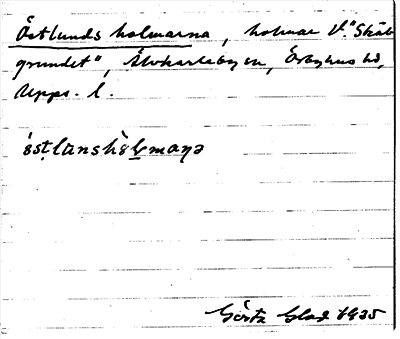 Östlunds holmarna, holmar V. "Skäb
grundet", Älvkarleby sn, Örbyhus hd,
Upps. l.
östlunshòlmaṇa
Görta Glad 1935